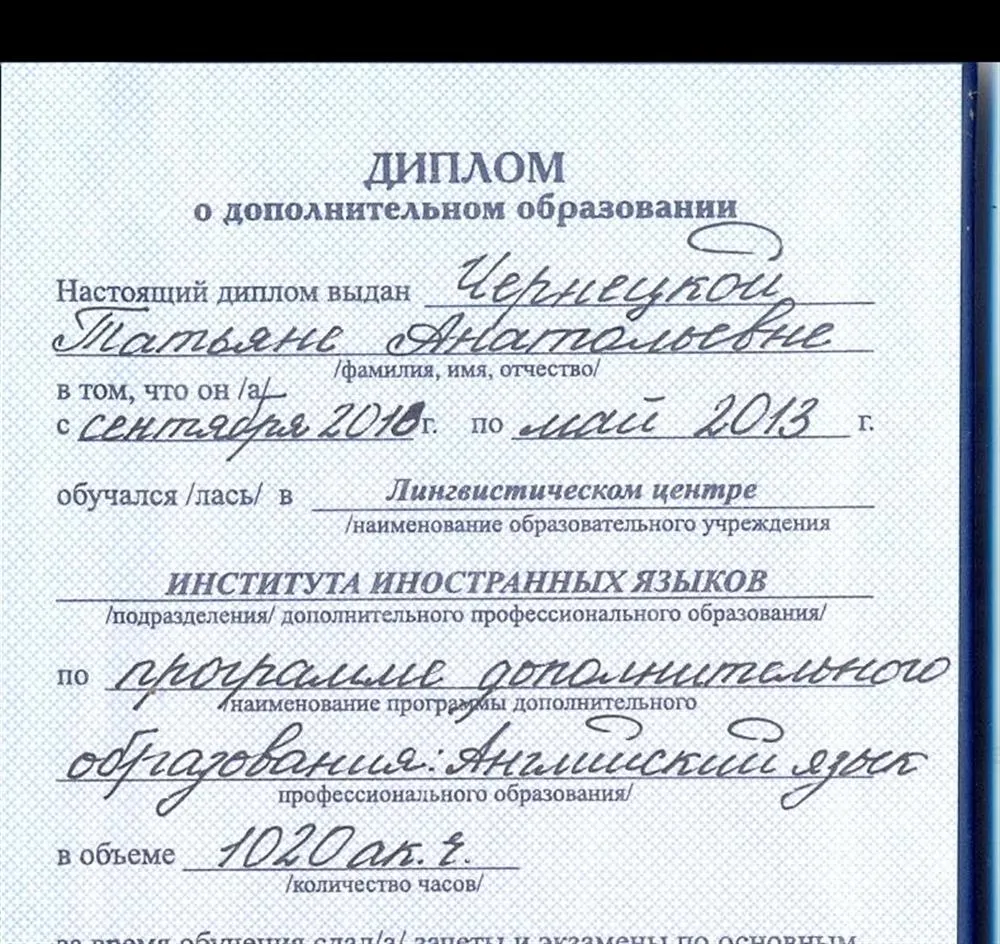 ДИПЛОМ
о дополнительном образовании
Настоящий диплом выдан Чернецкой
Татьяне Анатольевне
/фамилия, имя, отчество/
в том, что он /а/
с сентября 2010 г. по май 2013 г.
обучался /лась/ в Лингвистическом центре
/наименование образовательного учреждения
ИНСТИТУТА ИНОСТРАННЫХ ЯЗЫКОВ
/подразделения/ дополнительного профессионального образования/
по программе дополнительного
/наименование программы дополнительного
образования: Английский язык
профессионального образования/
в объеме 1020 ак. ч.
/количество часов/
за время обучения сдал/а/ зачеты и экзамены по основным